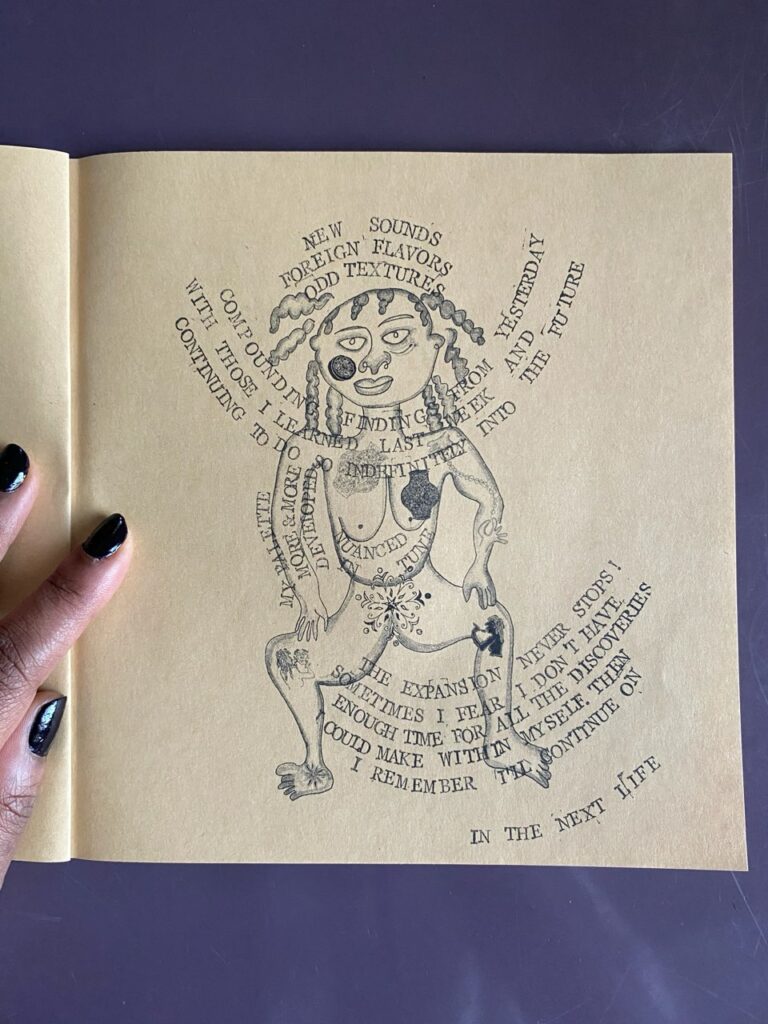 NEW SOUNDS
FOREIGN FLAVORS
ODD TEXTURES
COMPOUNDING FINDING FROM YESTERDAY
WITH THOSE I LEARNED LAST WEEK AND
CONTINUING TO DO SO INDEFINITELY INTO THE FUTURE
MY PALETTE
MORE & MORE
DEVELOPED
NUANCED
IN TUNE
THE EXPANSION NEVER STOPS!
SOMETIMES I FEAR I DON'T HAVE
ENOUGH TIME FOR ALL THE DISCOVERIES
I COULD MAKE WITHIN MYSELF THEN
I REMEMBER I'LL CONTINUE ON
IN THE NEXT LIFE